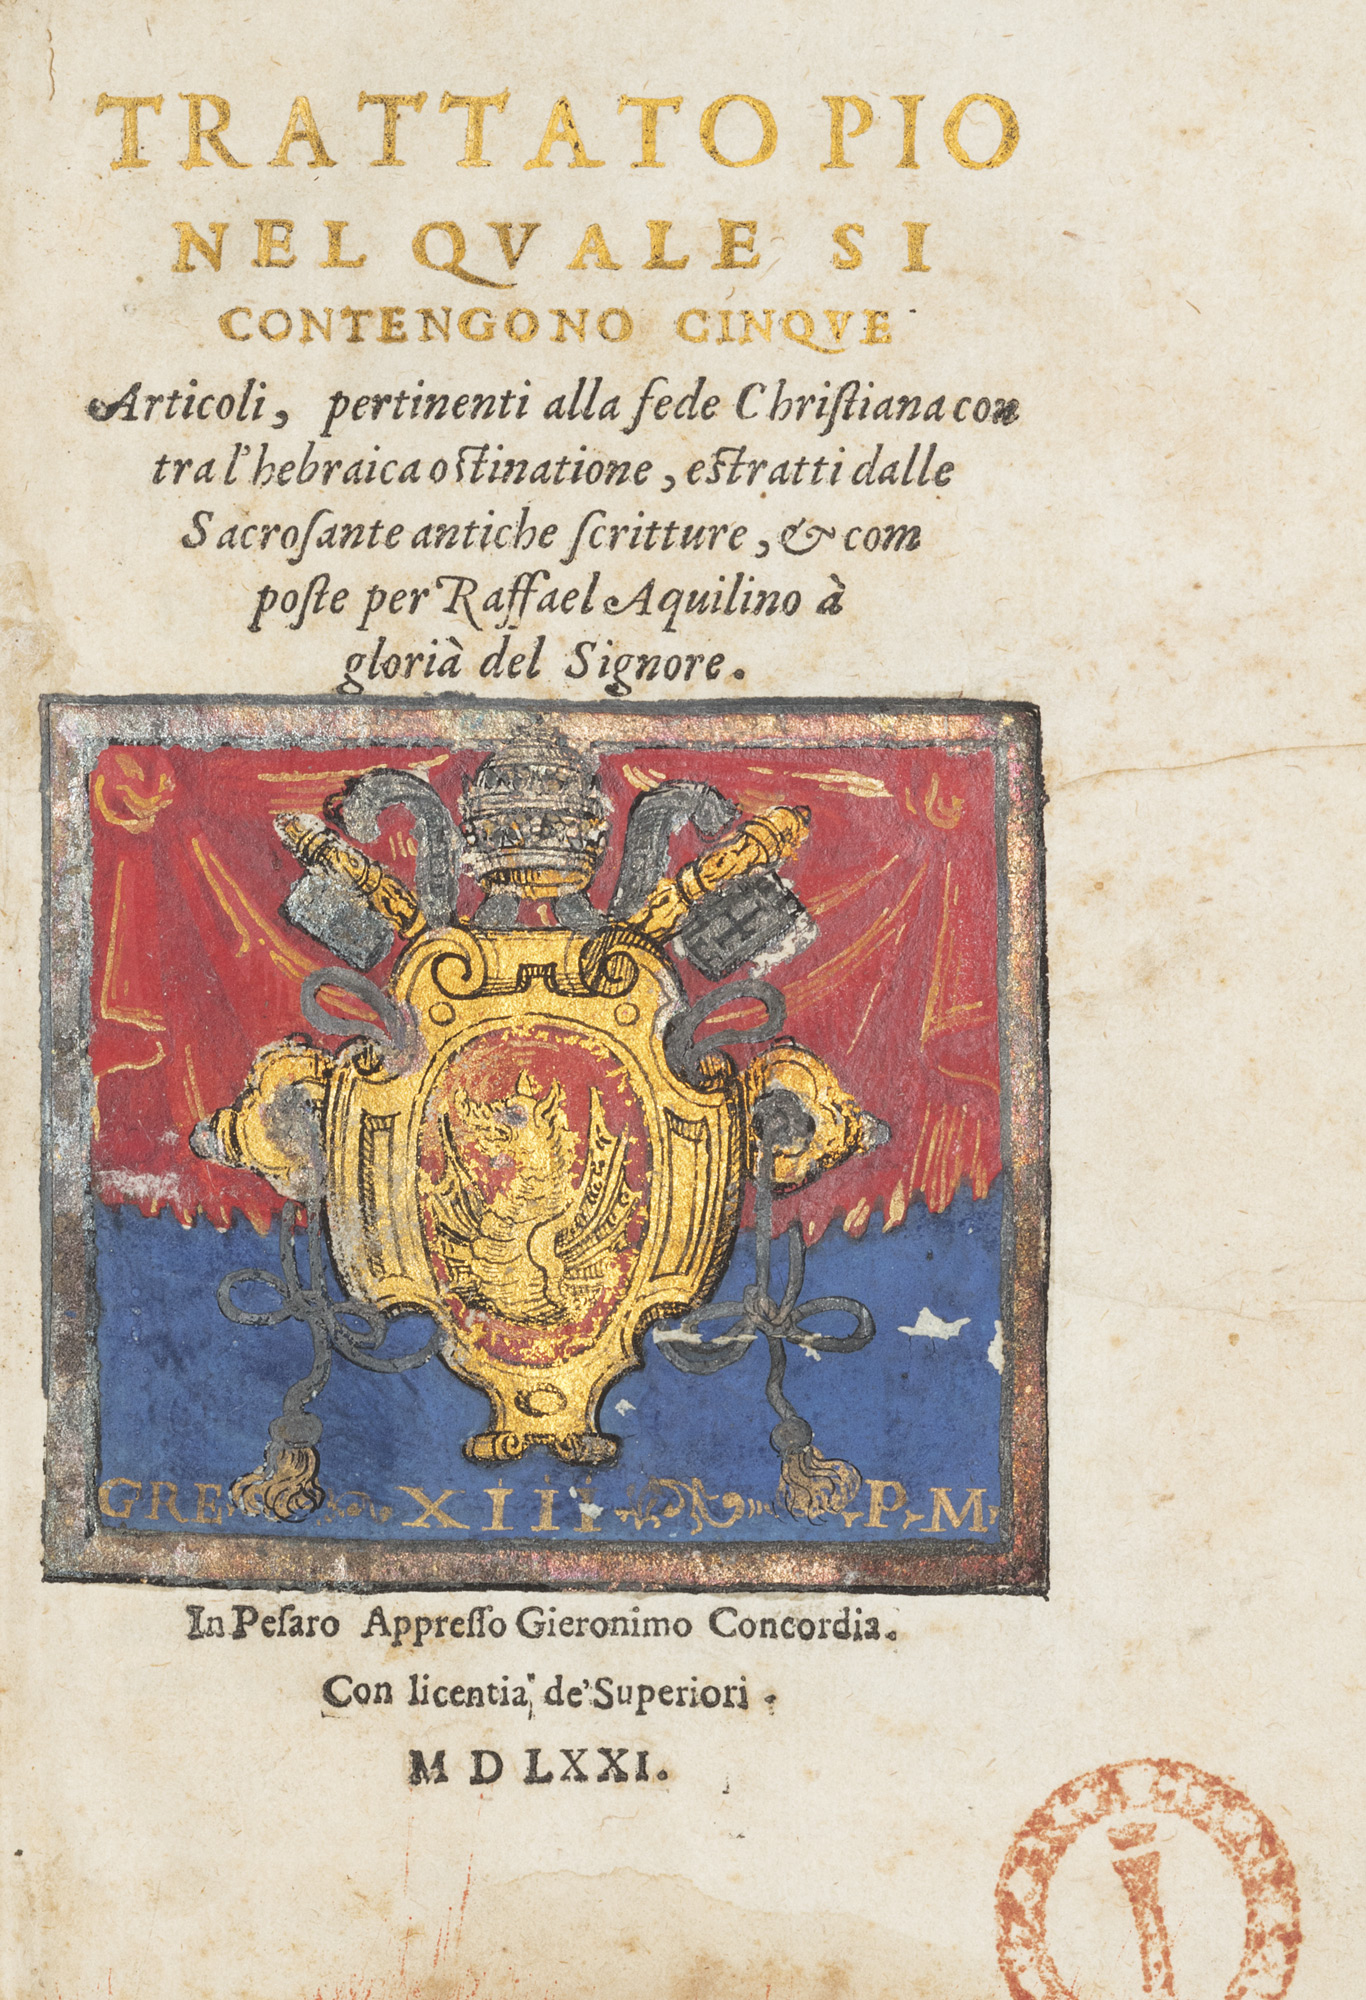 TRATTATO PIO
NEL QVALE SI
CONTENGONO CINQVE
Articoli, pertinenti alla fede Chriſtiana con
tra l'hebraica oſtinatione, eſtratti dalle
Sacroſante antiche ſcritture, & com
poſte per Raffael Aquilino à
glorià del Signore.
GRE XIII P. M
In Peſaro Appreſſo Gieronimo Concordia.
Con licentia, de' Superiori.
M D LXXI.